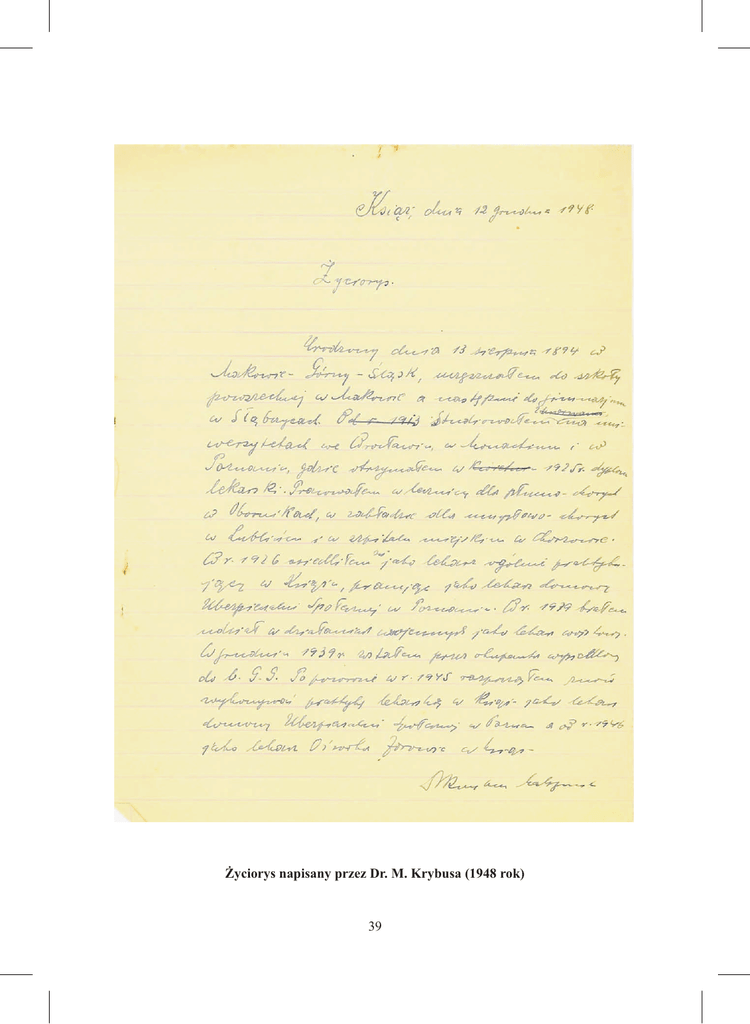 Książ, dnia 12 grudnia 1948
Życiorys.
Urodzony dnia 13 sierpnia 1894 w
Makowie - Górny - Śląsk, uczęszczałem do szkoły
powszechnej w Makowie a następnie do gimnazjum
w Głąbczycach. Od r. 1913 Studiowałem na uni-
wersytetach we Wrocławiu, w Monachium i w
Poznaniu, gdzie otrzymałem w 1925 r. dyplom
lekarski. Pracowałem w lecznicy dla płucno-chorych
w Obornikach, w zakładzie dla umysłowo-chorych
w Lublińcu i w szpitalu miejskim w Chorzowie.
W r. 1926 osiedliłem się jako lekarz ogólnie praktyku-
jący w Książu, pracując jako lekarz domowy
Ubezpieczalni Społecznej w Poznaniu. W r. 1939 brałem
udział w działaniach wojennych jako lekarz wojskowy.
W grudniu 1939 r. zostałem przez okupanta wysiedlony
do b. G. G. Po powrocie w r. 1945 rozpocząłem znowu
wykonywać praktykę lekarską w Książu jako lekarz
domowy Ubezpieczalni Społecznej w Poznan a od r. 1946
jako lekarz Ośrodka Zdrowia w Książu
Życiorys napisany przez Dr. M. Krybusa (1948 rok)
39